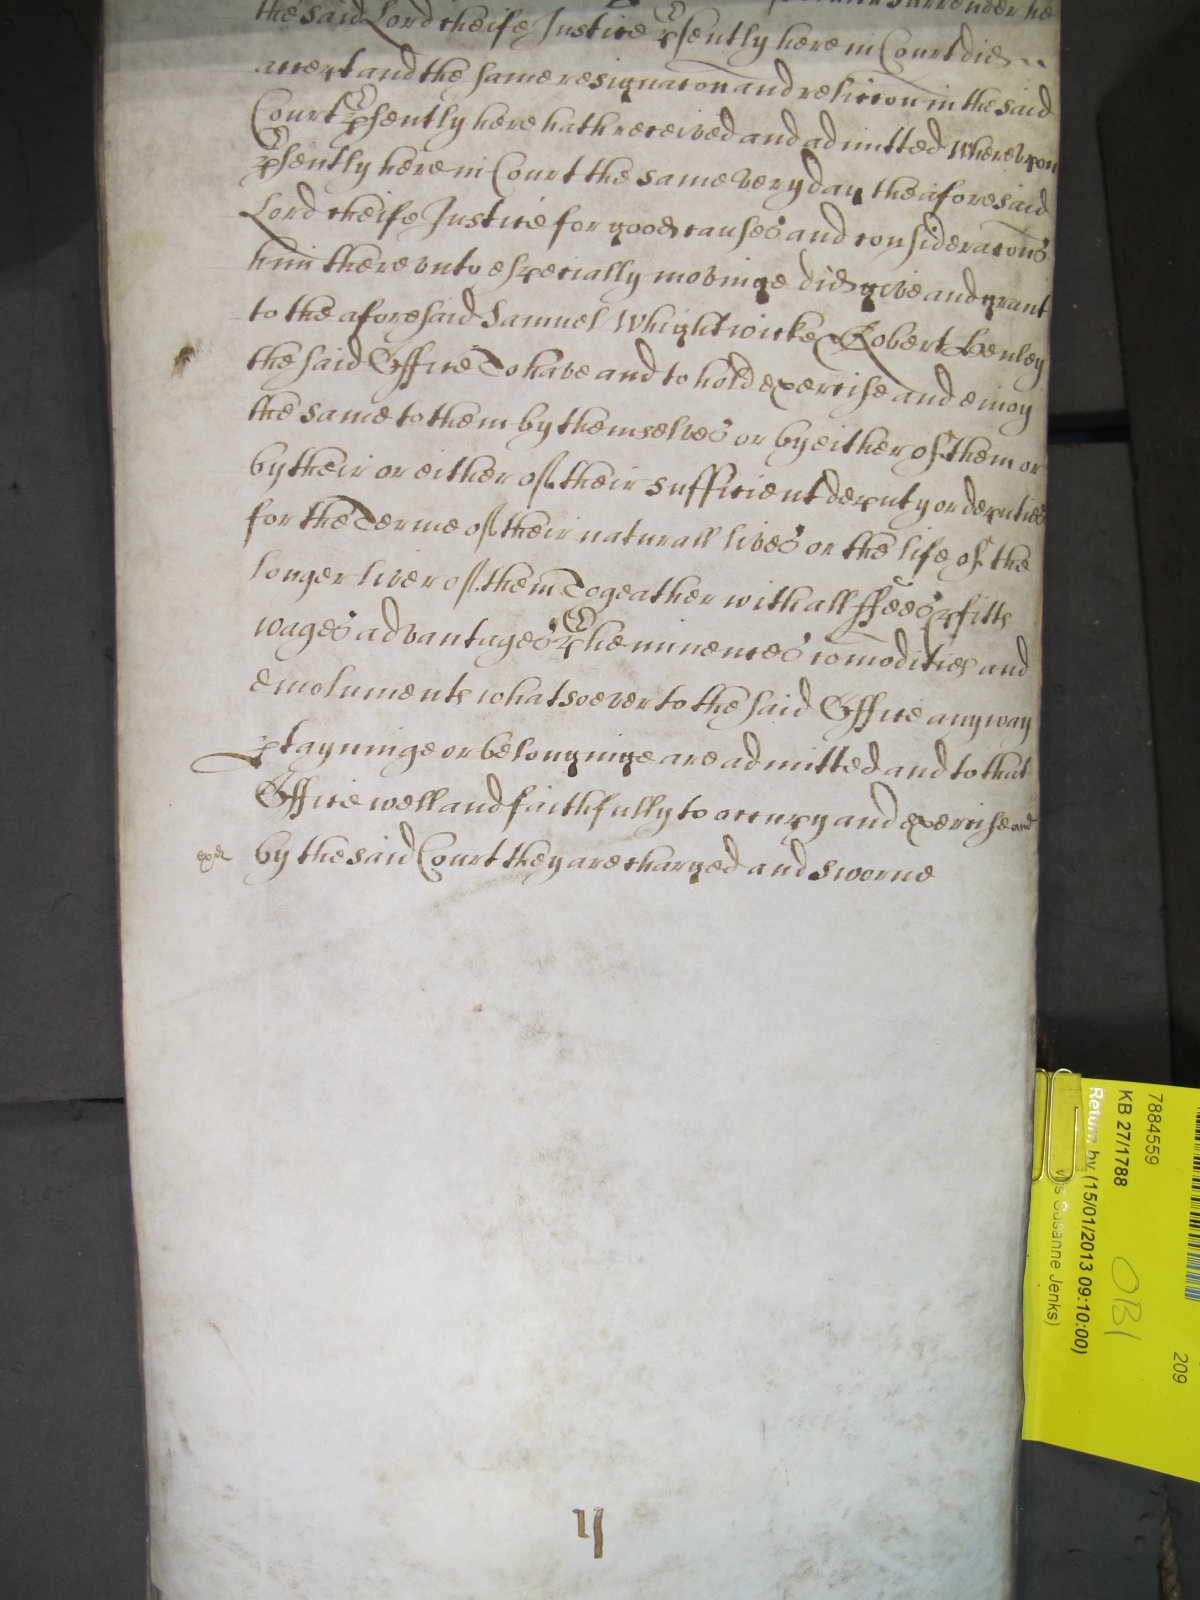 Surrender he
the said Lord cheife Justice psently here in Court did
accept and the same resignacon and reliccon in the said
Court psently here hath received and admitted Wherevpon
psently here in Court the same very day the aforesaid
Lord cheife Justice for good causes and consideracons
him therevnto especially movinge did give and grant
to the aforesaid Samuel Whightwicke & Robert Henley
the said Office To have and to hold exercise and enioy
the same to them by themselves or by either of them or
by their or either of their sufficient deputy or deputies
for the Terme of their naturall lives or the life of the
longer liver of them Togeather with all ffees pfitts
wages advantages pheminences comodities and
emoluments whatsoever to the said Office any way
ptayninge or belonginge are admitted and to that
Office well and faithfully to occupy and exercise and
by the said Court they are charged and sworne
exr
ij
7884559
KB 27/1788
Return by (15/01/2013 09:10:00)
Susanne Jenks)
OB1
209